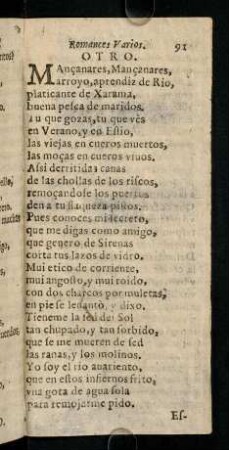 Romances Varios. 91
OTRO.
MAnçanares, Mançanares,
arroyo, aprendiz de Rio,
platicante de Xarama,
buena pesca de maridos.
Tu que gozas, tu que vès
en Verano, y en Estio,
las viejas en cueros muertos,
las moças en cueros viuos.
Assi derritidas canas
de las chollas de los riscos,
remoçandose los puertos
den a tu flaqueza pinos.
Pues conoces mi secreto,
que me digas como amigo,
que genero de Sirenas
corta tus lazos de vidro.
Mui etico de corriente,
mui angosto, y mui roido,
con dos charcos por muletas,
en pie se leuantò, y dixo.
Tieneme la sed del Sol
tan chupado, y tan sorbido,
que se me mueren de sed
las ranas, y los molinos.
Yo soy el rio auariento,
que en estos infiernos frito,
vna gota de agua sola
para remojarme pido.
Es-